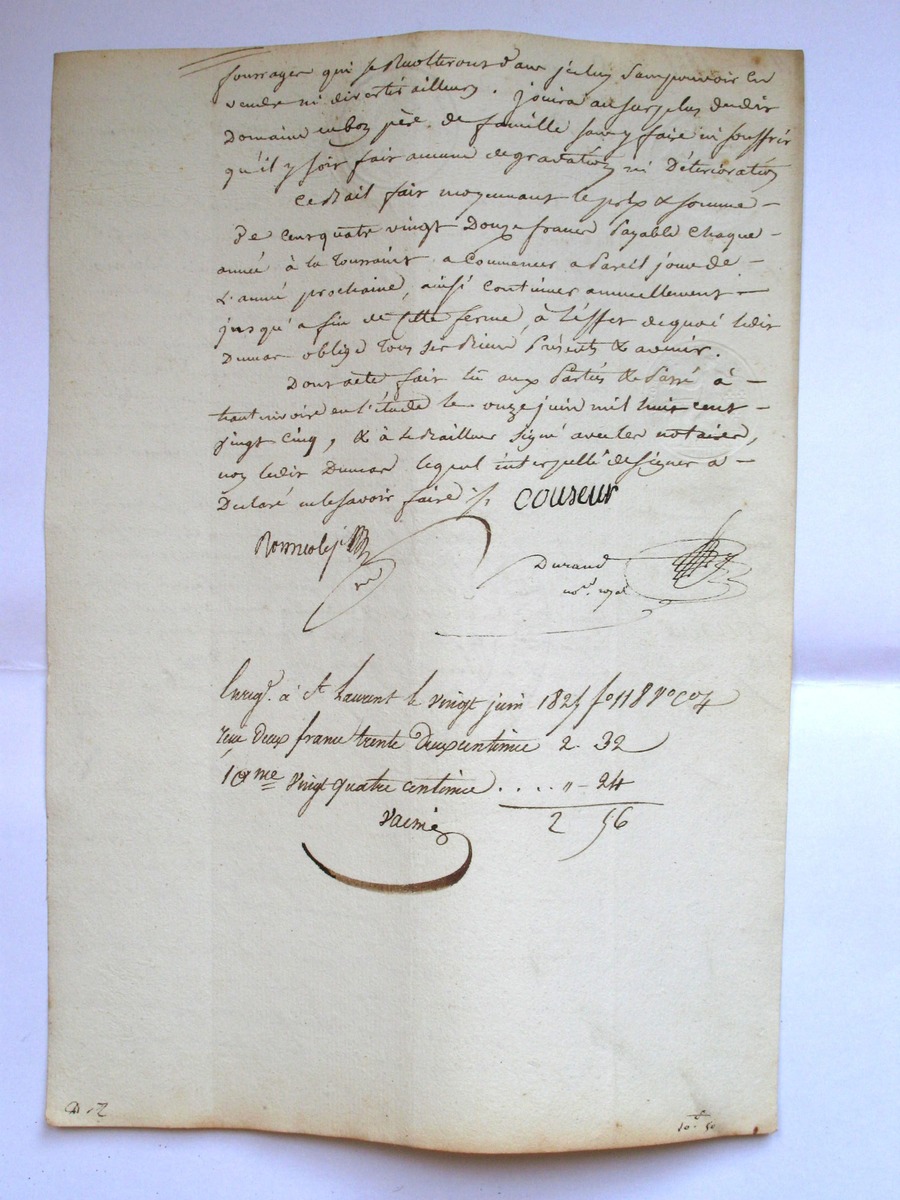 fourrages qui se Recolteront dans jcelui Sans pouvoir En
vendre ni divertir ailleurs. jouira au surplus dudit
Domaine en bon père de famille sans y faire ni souffrir
qu'il y soit fait aucune degradation ni Déterioration
Ce Bail fait moyennant le prix & somme -
De Cent quatre vingt Douze francs Payable Chaque -
année à la Toussaint a Commencer a Pareil jour de -
L'année prochaine, ainsi continuer annuellement -
jusqu'a fin de cette ferme, à l'éffet de quoi ledit
Dumas oblige Tous ses Biens Présents & avenir.
Dont acte fait lû aux Parties & Passé à -
en l'étude le onze juin mil huit cent -
Vingt cinq, & à le Bailleur signé avec les notaires,
non ledit Dumas lequel interpellé de signer a -
Declaré ne le savoir faire
COUSEUR
Durand
not. royal
Enregt. à St Laurent le vingt juin 1825 fo 118 Vo C 4
reçu Deux francs trente Deux centimes 2. 32
10me vingt quatre centimes .... " - 24
2 56